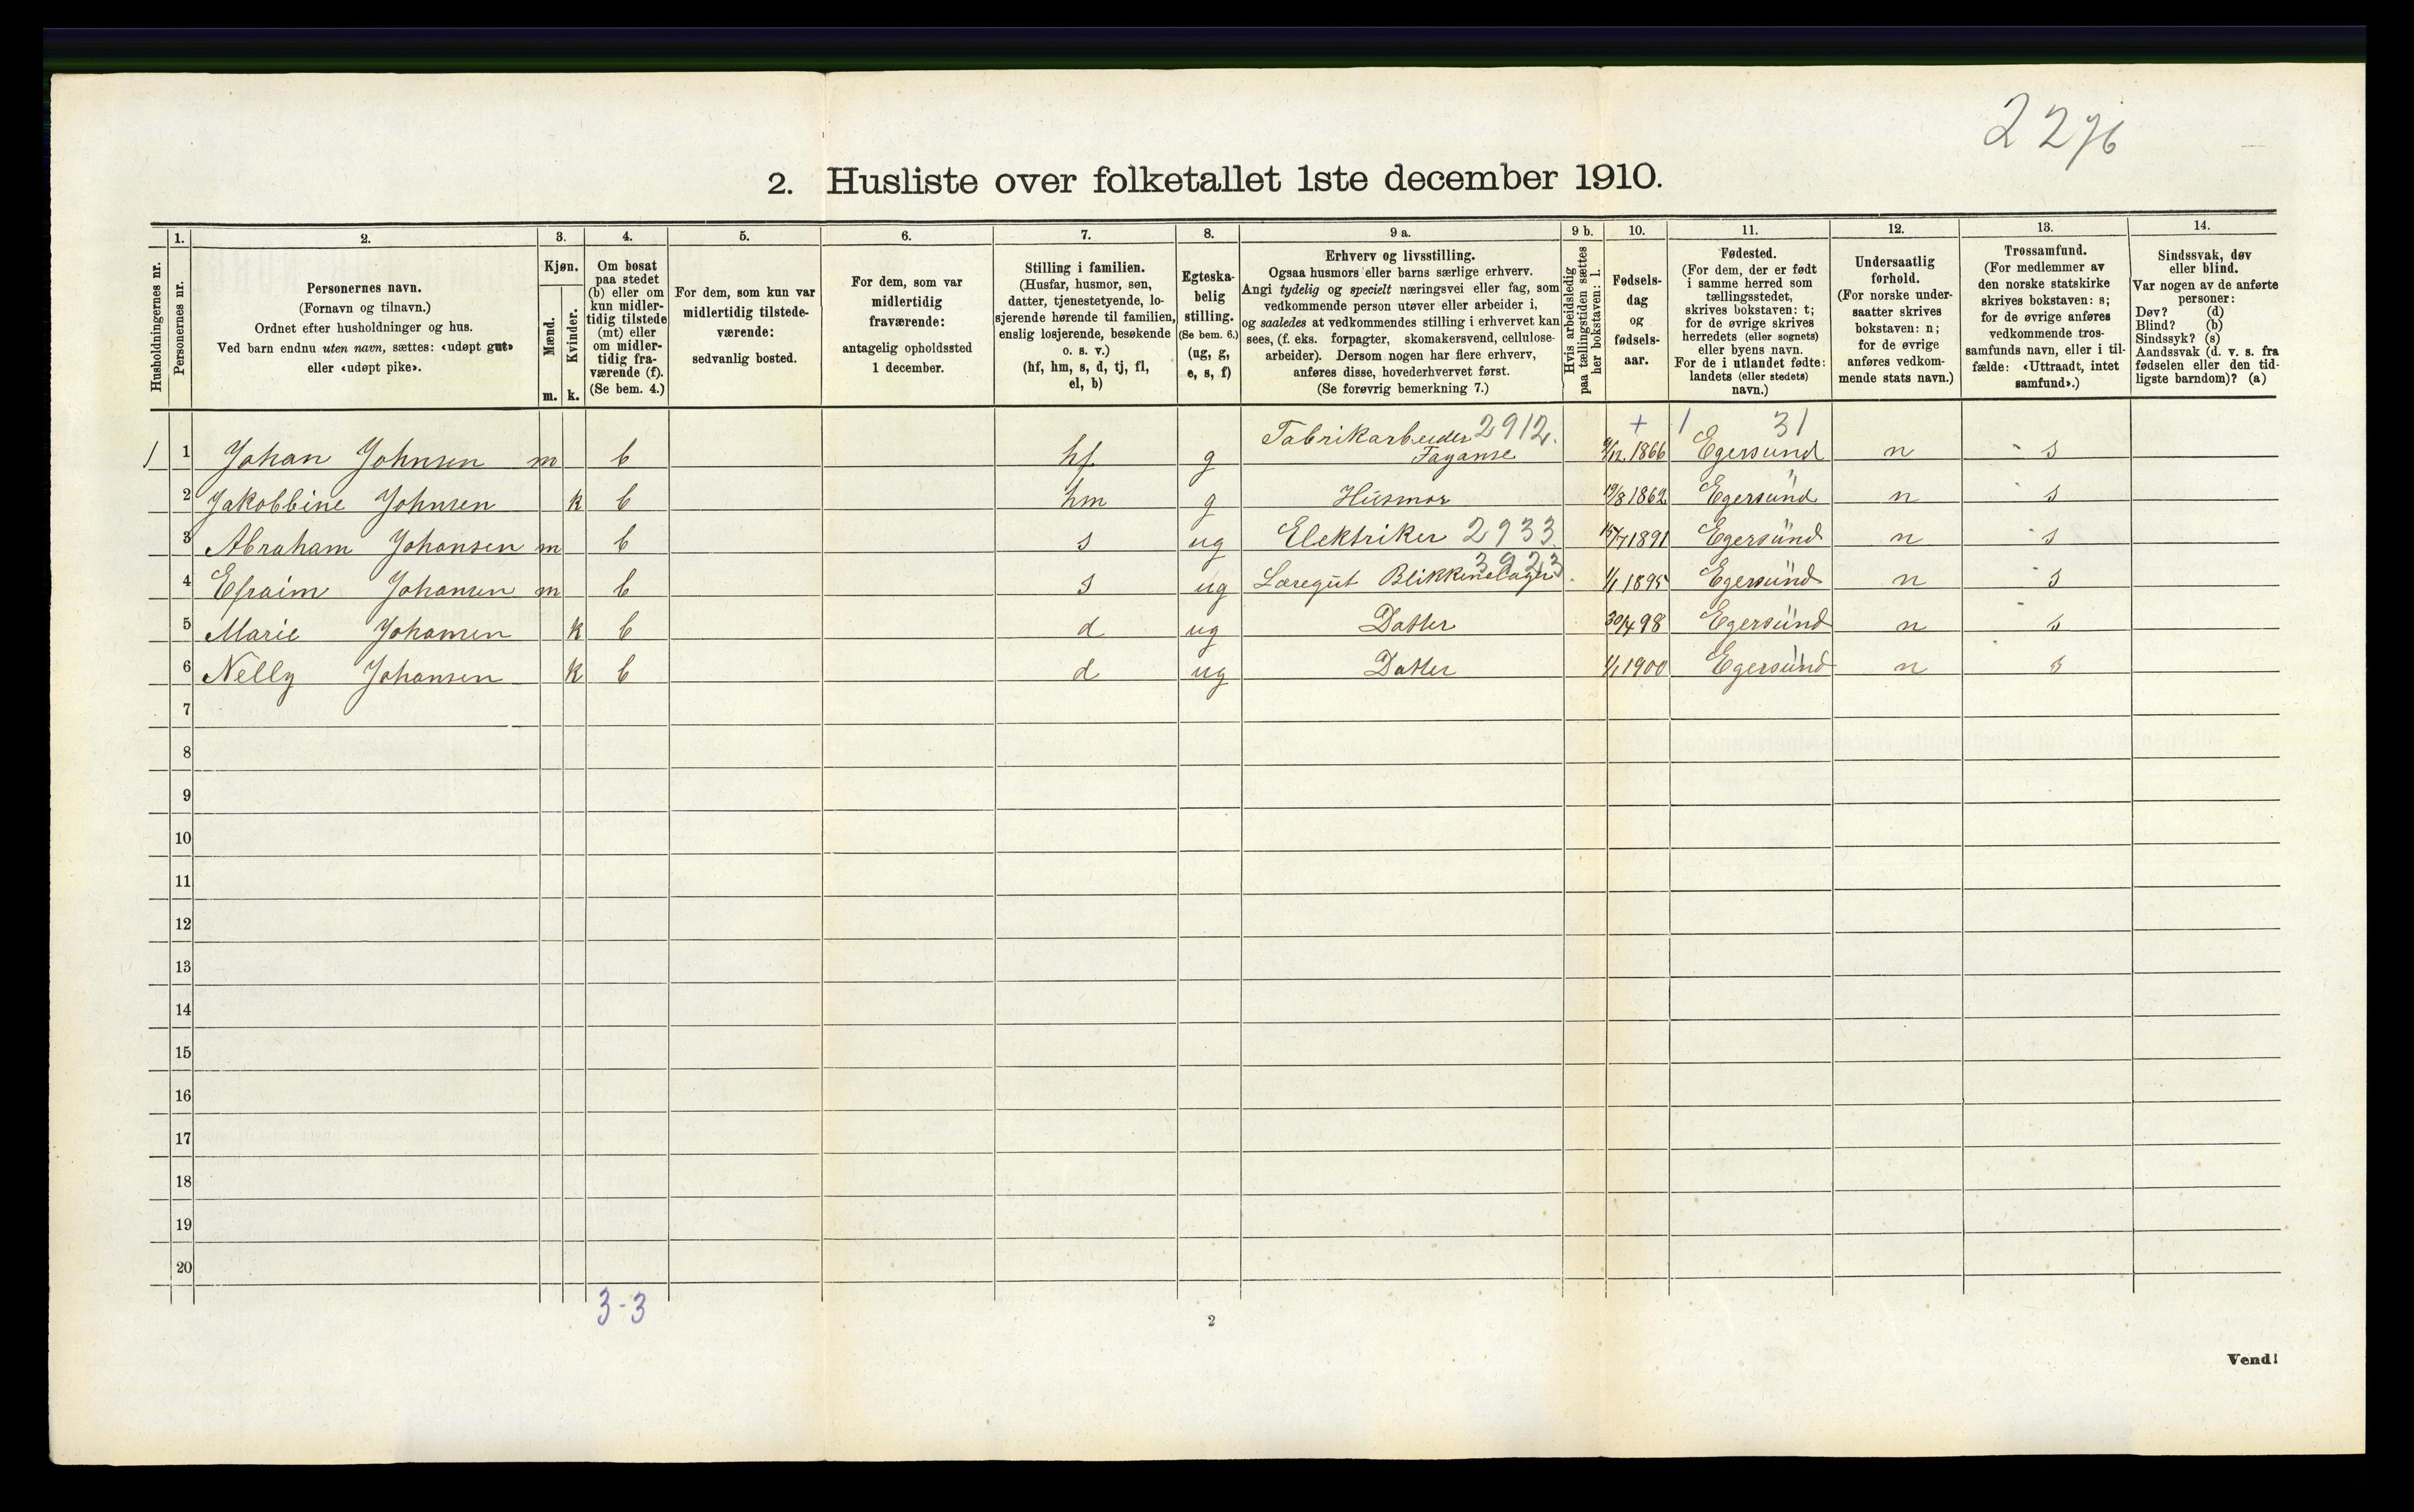 2276
2. Husliste over folketallet 1ste december 1910.
Husholdningernes nr.
1.
Personernes nr.
2.
Personernes navn.
(Fornavn og tilnavn.)
Ordnet efter husholdninger og hus.
Ved barn endnu uten navn, sættes: «udøpt gut»
eller «udøpt pike».
3.
Kjøn.
Mænd.
Kvinder.
m. k.
4.
Om bosat
paa stedet
(b) eller om
kun midler-
tidig tilstede
(mt) eller
om midler-
tidig fra-
værende (f).
(Se bem. 4.)
5.
For dem, som kun var
midlertidig tilstede-
værende:
sedvanlig bosted.
6.
For dem, som var
midlertidig
fraværende:
antagelig opholdssted
1 december.
7.
Stilling i familien.
(Husfar, husmor, søn,
datter, tjenestetyende, lo-
sjerende hørende til familien,
enslig losjerende, besøkende
o. s. v.)
(hf, hm, s, d, tj, fl,
el, b)
8.
Egteska-
belig
stilling.
(Se bem. 6.)
(ug, g,
e, s, f)
9 a.
Erhverv og livsstilling.
Ogsaa husmors eller barns særlige erhverv.
Angi tydelig og specielt næringsvei eller fag, som
vedkommende person utøver eller arbeider i,
og saaledes at vedkommendes stilling i erhvervet kan
sees, (f. eks. forpagter, skomakersvend, cellulose-
arbeider). Dersom nogen har flere erhverv,
anføres disse, hovederhvervet først.
(Se forøvrig bemerkning 7.)
9 b.
Hvis arbeidsledig
paa tællingstiden sættes
her bokstaven: l.
10.
Fødsels-
dag
og
fødsels-
aar.
11.
Fødested.
(For dem, der er født
i samme herred som
tællingsstedet,
skrives bokstaven: t;
for de øvrige skrives
herredets (eller sognets)
eller byens navn.
For de i utlandet fødte:
landets (eller stedets)
navn.)
12.
Undersaatlig
forhold.
(For norske under-
saatter skrives
bokstaven: n;
for de øvrige
anføres vedkom-
mende stats navn.)
13.
Trossamfund.
(For medlemmer av
den norske statskirke
skrives bokstaven: s;
for de øvrige anføres
vedkommende tros-
samfunds navn, eller i til-
fælde: «Uttraadt, intet
samfund».)
14.
Sindssvak, døv
eller blind.
Var nogen av de anførte
personer:
Døv? (d)
Blind? (b)
Sindssyk? (s)
Aandssvak (d. v. s. fra
fødselen eller den tid-
ligste barndom)? (a)
Fabrikarbeider 2912. + 1 31
1 1 Johan Johnsen m b hf g Fayanse 1866 Egersund n s
2 Jakobbine Johnsen k b hm g Husmor 19/8 1862 Egersund n s
3 Abraham Johansen m b s ug Elektriker 2933 15/7 1891 Egersund n s
3923
4 Efraim Johansen m b s ug Læregut Blikkenslager 1/1 1895 Egersund n s
5 Marie Johansen k b d ug Datter 30/4 98 Egersund n s
6 Nelly Johansen k b d ug Datter 1/1 1900 Egersund n s
7
8
9
10
11
12
13
14
15
16
17
18
19
20
3-3
2
Vend!